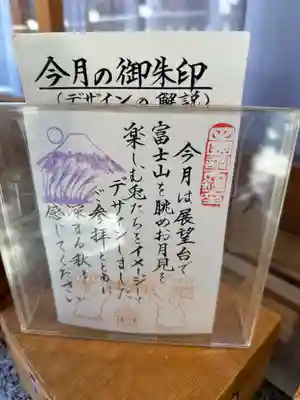 今月の御朱印
(デザインの解説)
今月は展望台で
富士山を眺めお月見を
楽しむ兎たちをイメージし
デザインしました
ご参拝とともに
深まる秋を
感じてください